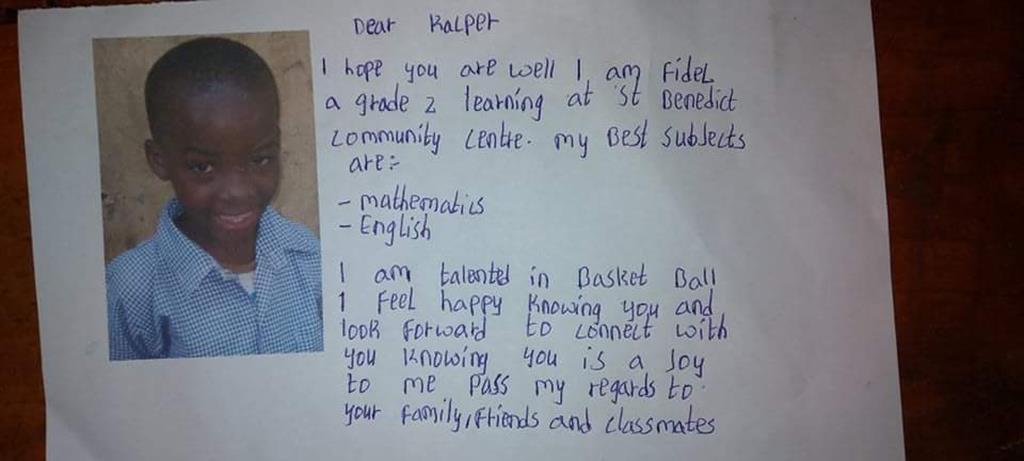 Dear Kalper
I hope you are well I am Fidel
a grade 2 learning at St Benedict
Community Centre. my Best subjects
are:-
- mathematics
- English
I am talented in Basket Ball
I Feel happy knowing you and
look Forward to connect with
you knowing you is a Joy
to me Pass my regards to
your Family, Friends and classmates